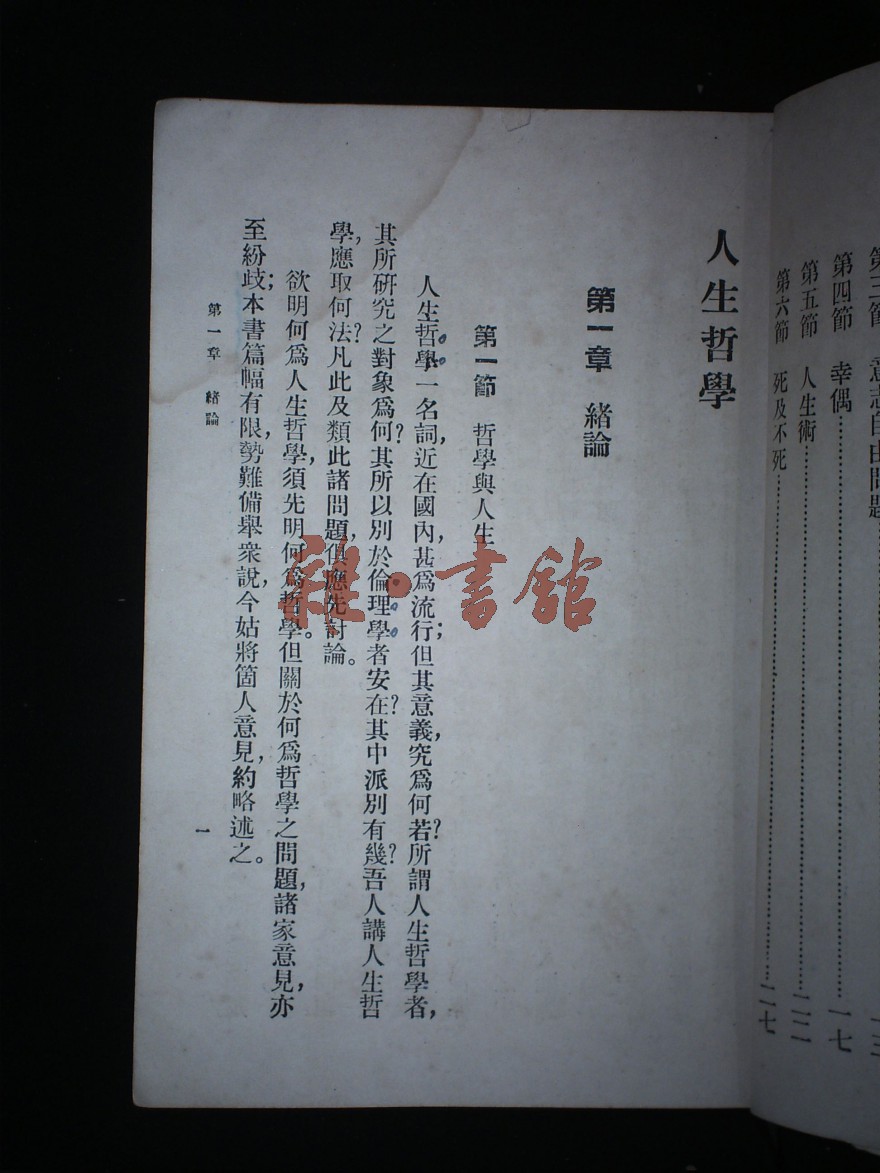 第三節　意志自由問題
第四節　幸偶…………一七
第五節　人生術…………二二
第六節　死及不死…………二七
人生哲學
第一章　緒論
第一節　哲學與人生
人生哲學一名詞，近在國內甚爲流行；但其意義，究爲何若？所謂人生哲學者，
其所研究之對象爲何？其所以別於倫理學者安在？其中派別有幾？吾人講人生哲
學，應取何法？凡此及類此諸問題，俱應先討論。
欲明何爲人生哲學，須先明何爲哲學。但關於何爲哲學之問題，諸家意見，亦
至紛歧；本書篇幅有限，勢難備舉衆說，今姑將箇人意見，約略述之。
第一章　緒論
一
雜·書館